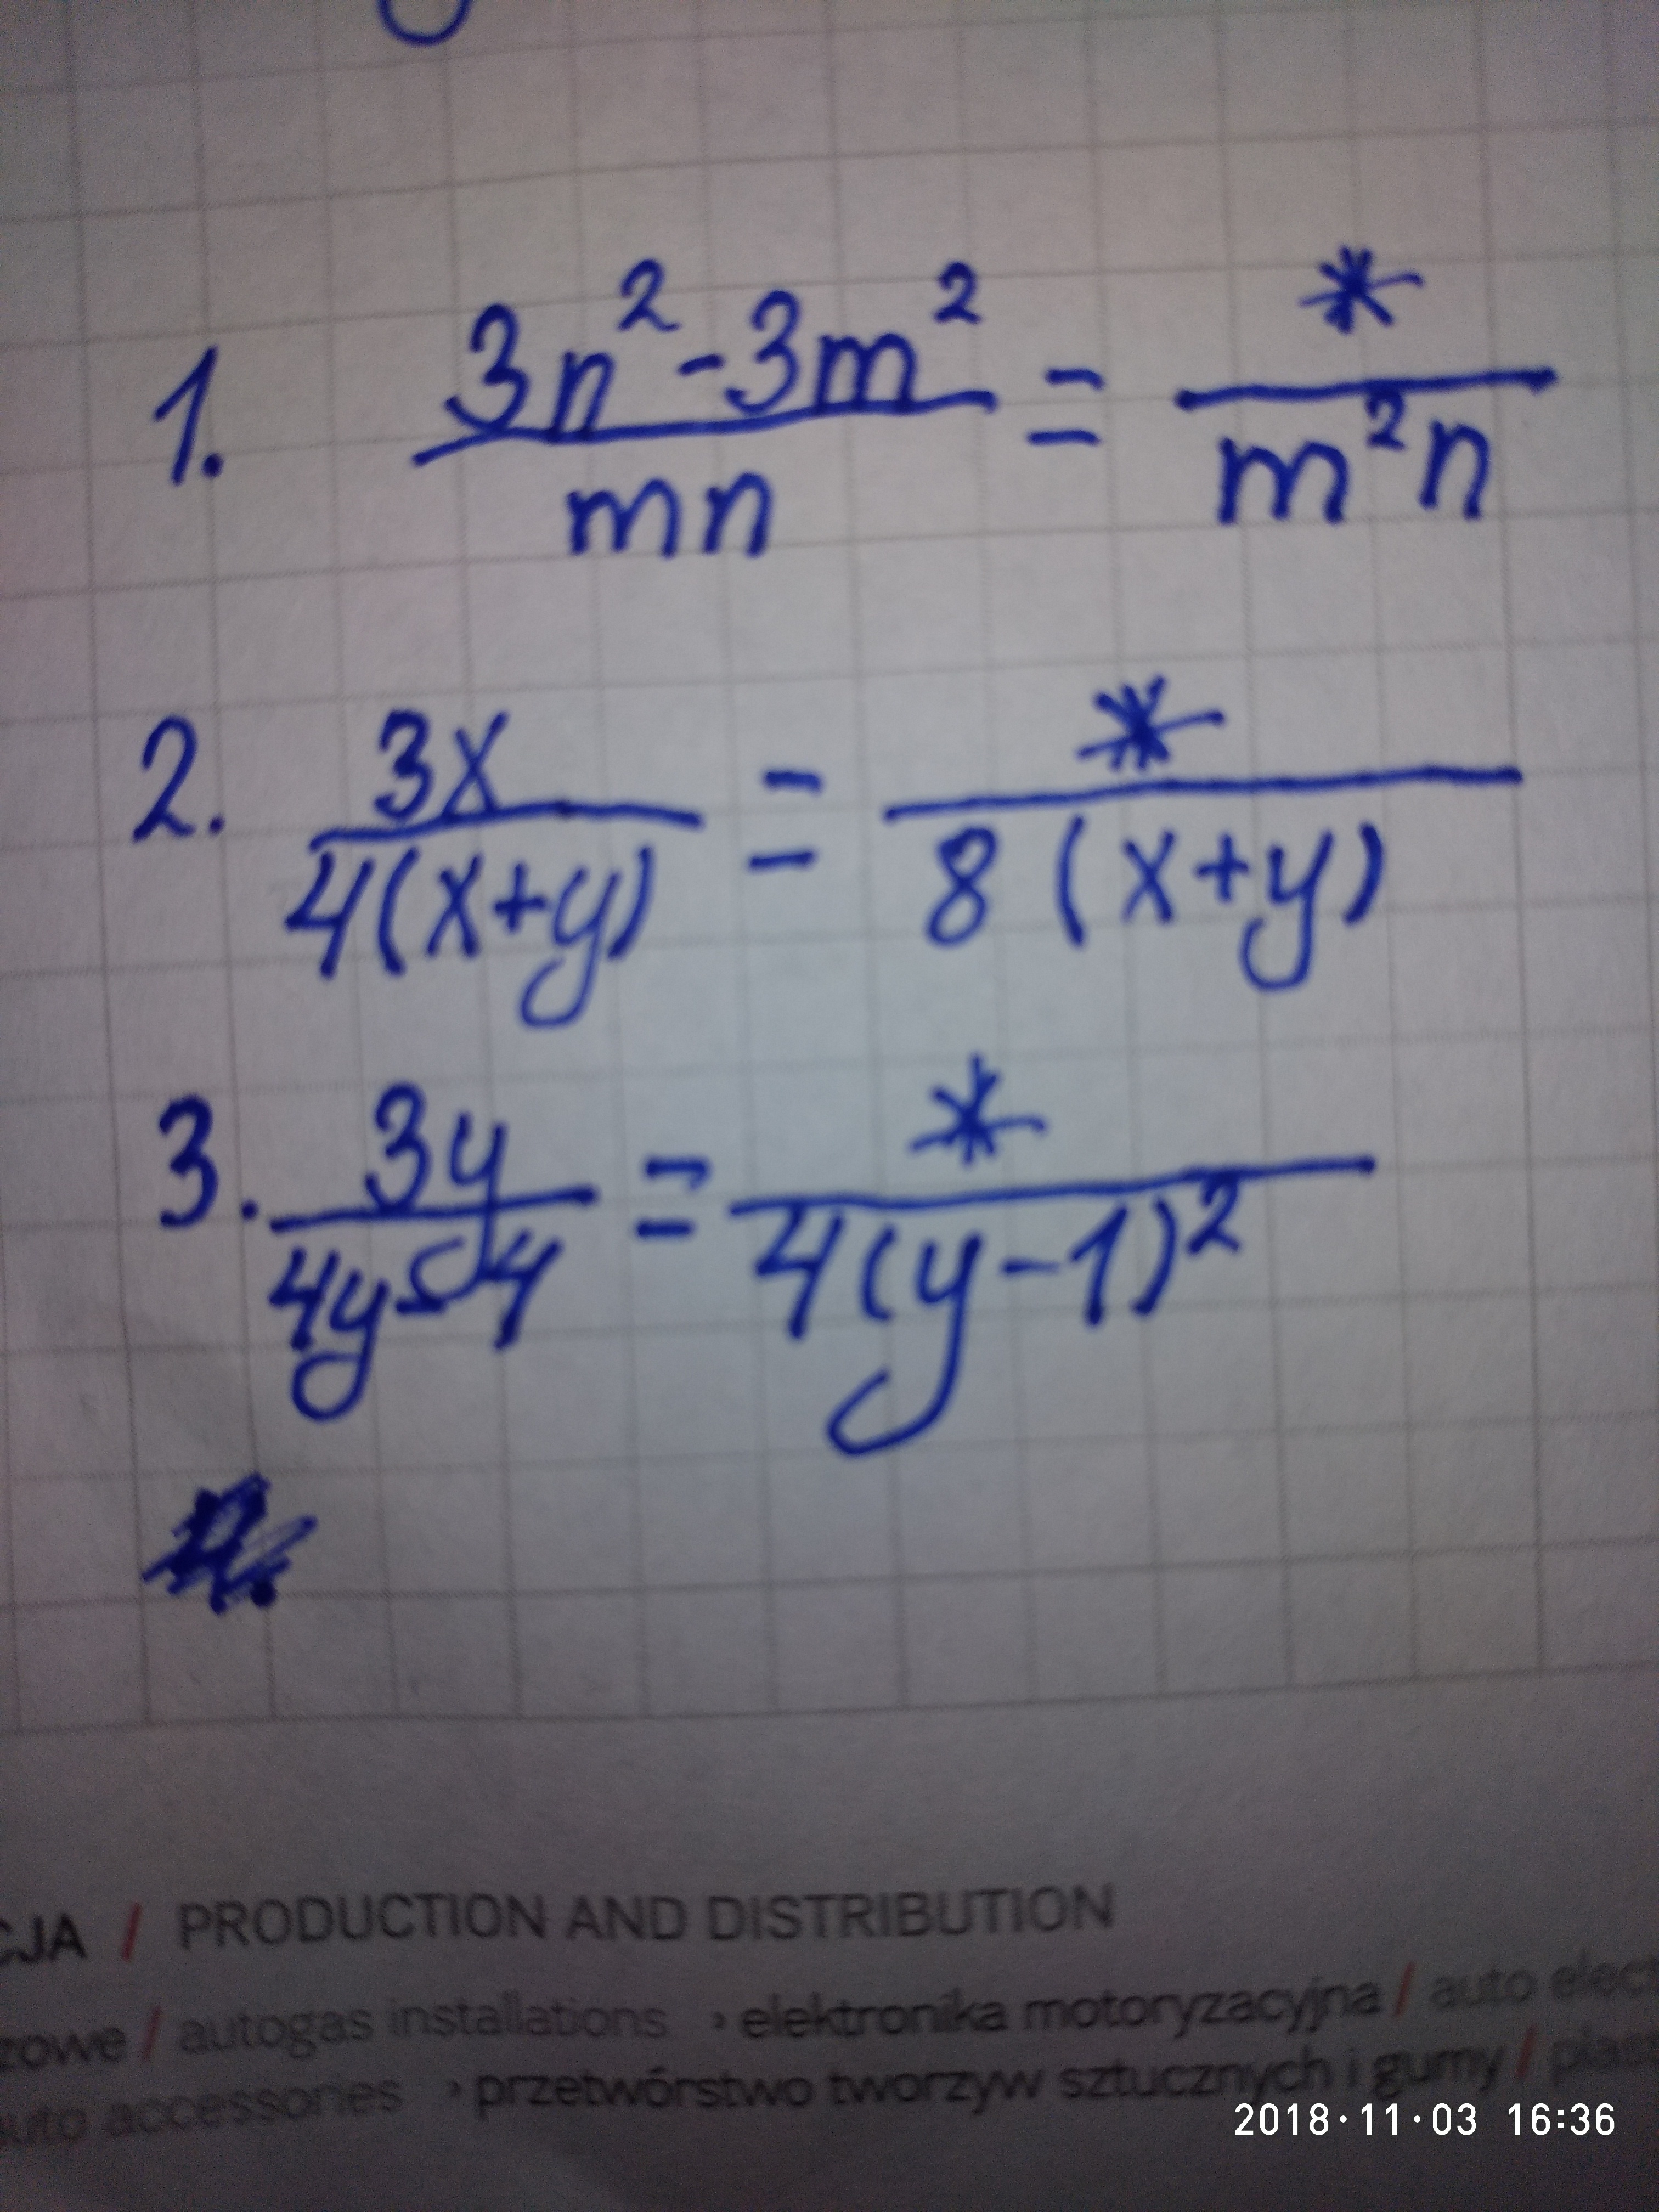 1. 3n²-3m² / mn = * / m²n
2. 3x / 4(x+y) = * / 8(x+y)
3. 3y / 4y-4 = * / 4(y-1)²
CJA / PRODUCTION AND DISTRIBUTION
zowe / autogas installations › elektronika motoryzacyjna / auto elect
auto accessories › przetwórstwo tworzyw sztucznych i gumy / plast
2018·11·03 16:36